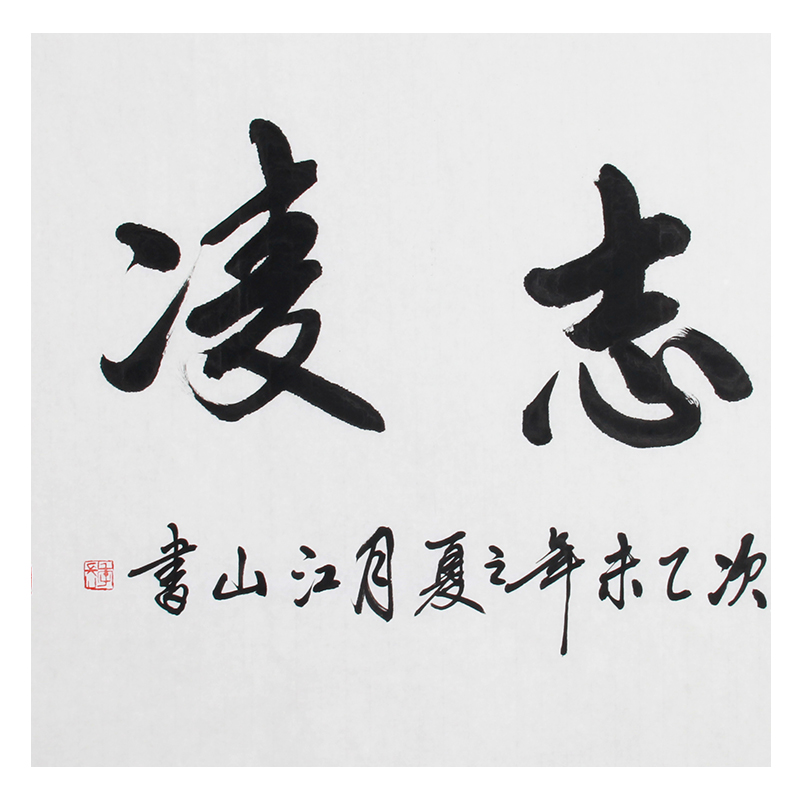 志凌
次乙未年之夏月江山书